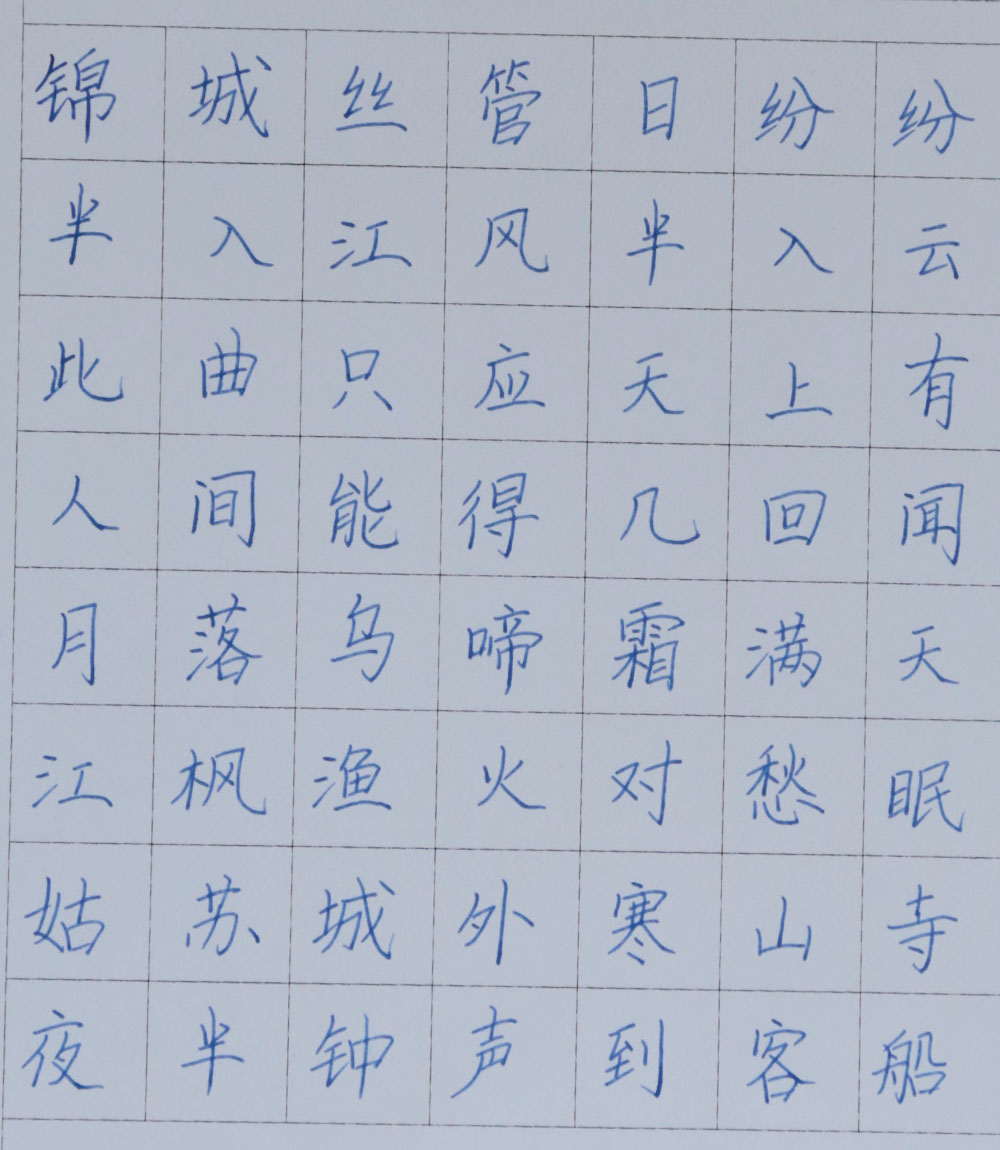 锦城丝管日纷纷
半入江风半入云
此曲只应天上有
人间能得几回闻
月落乌啼霜满天
江枫渔火对愁眠
姑苏城外寒山寺
夜半钟声到客船